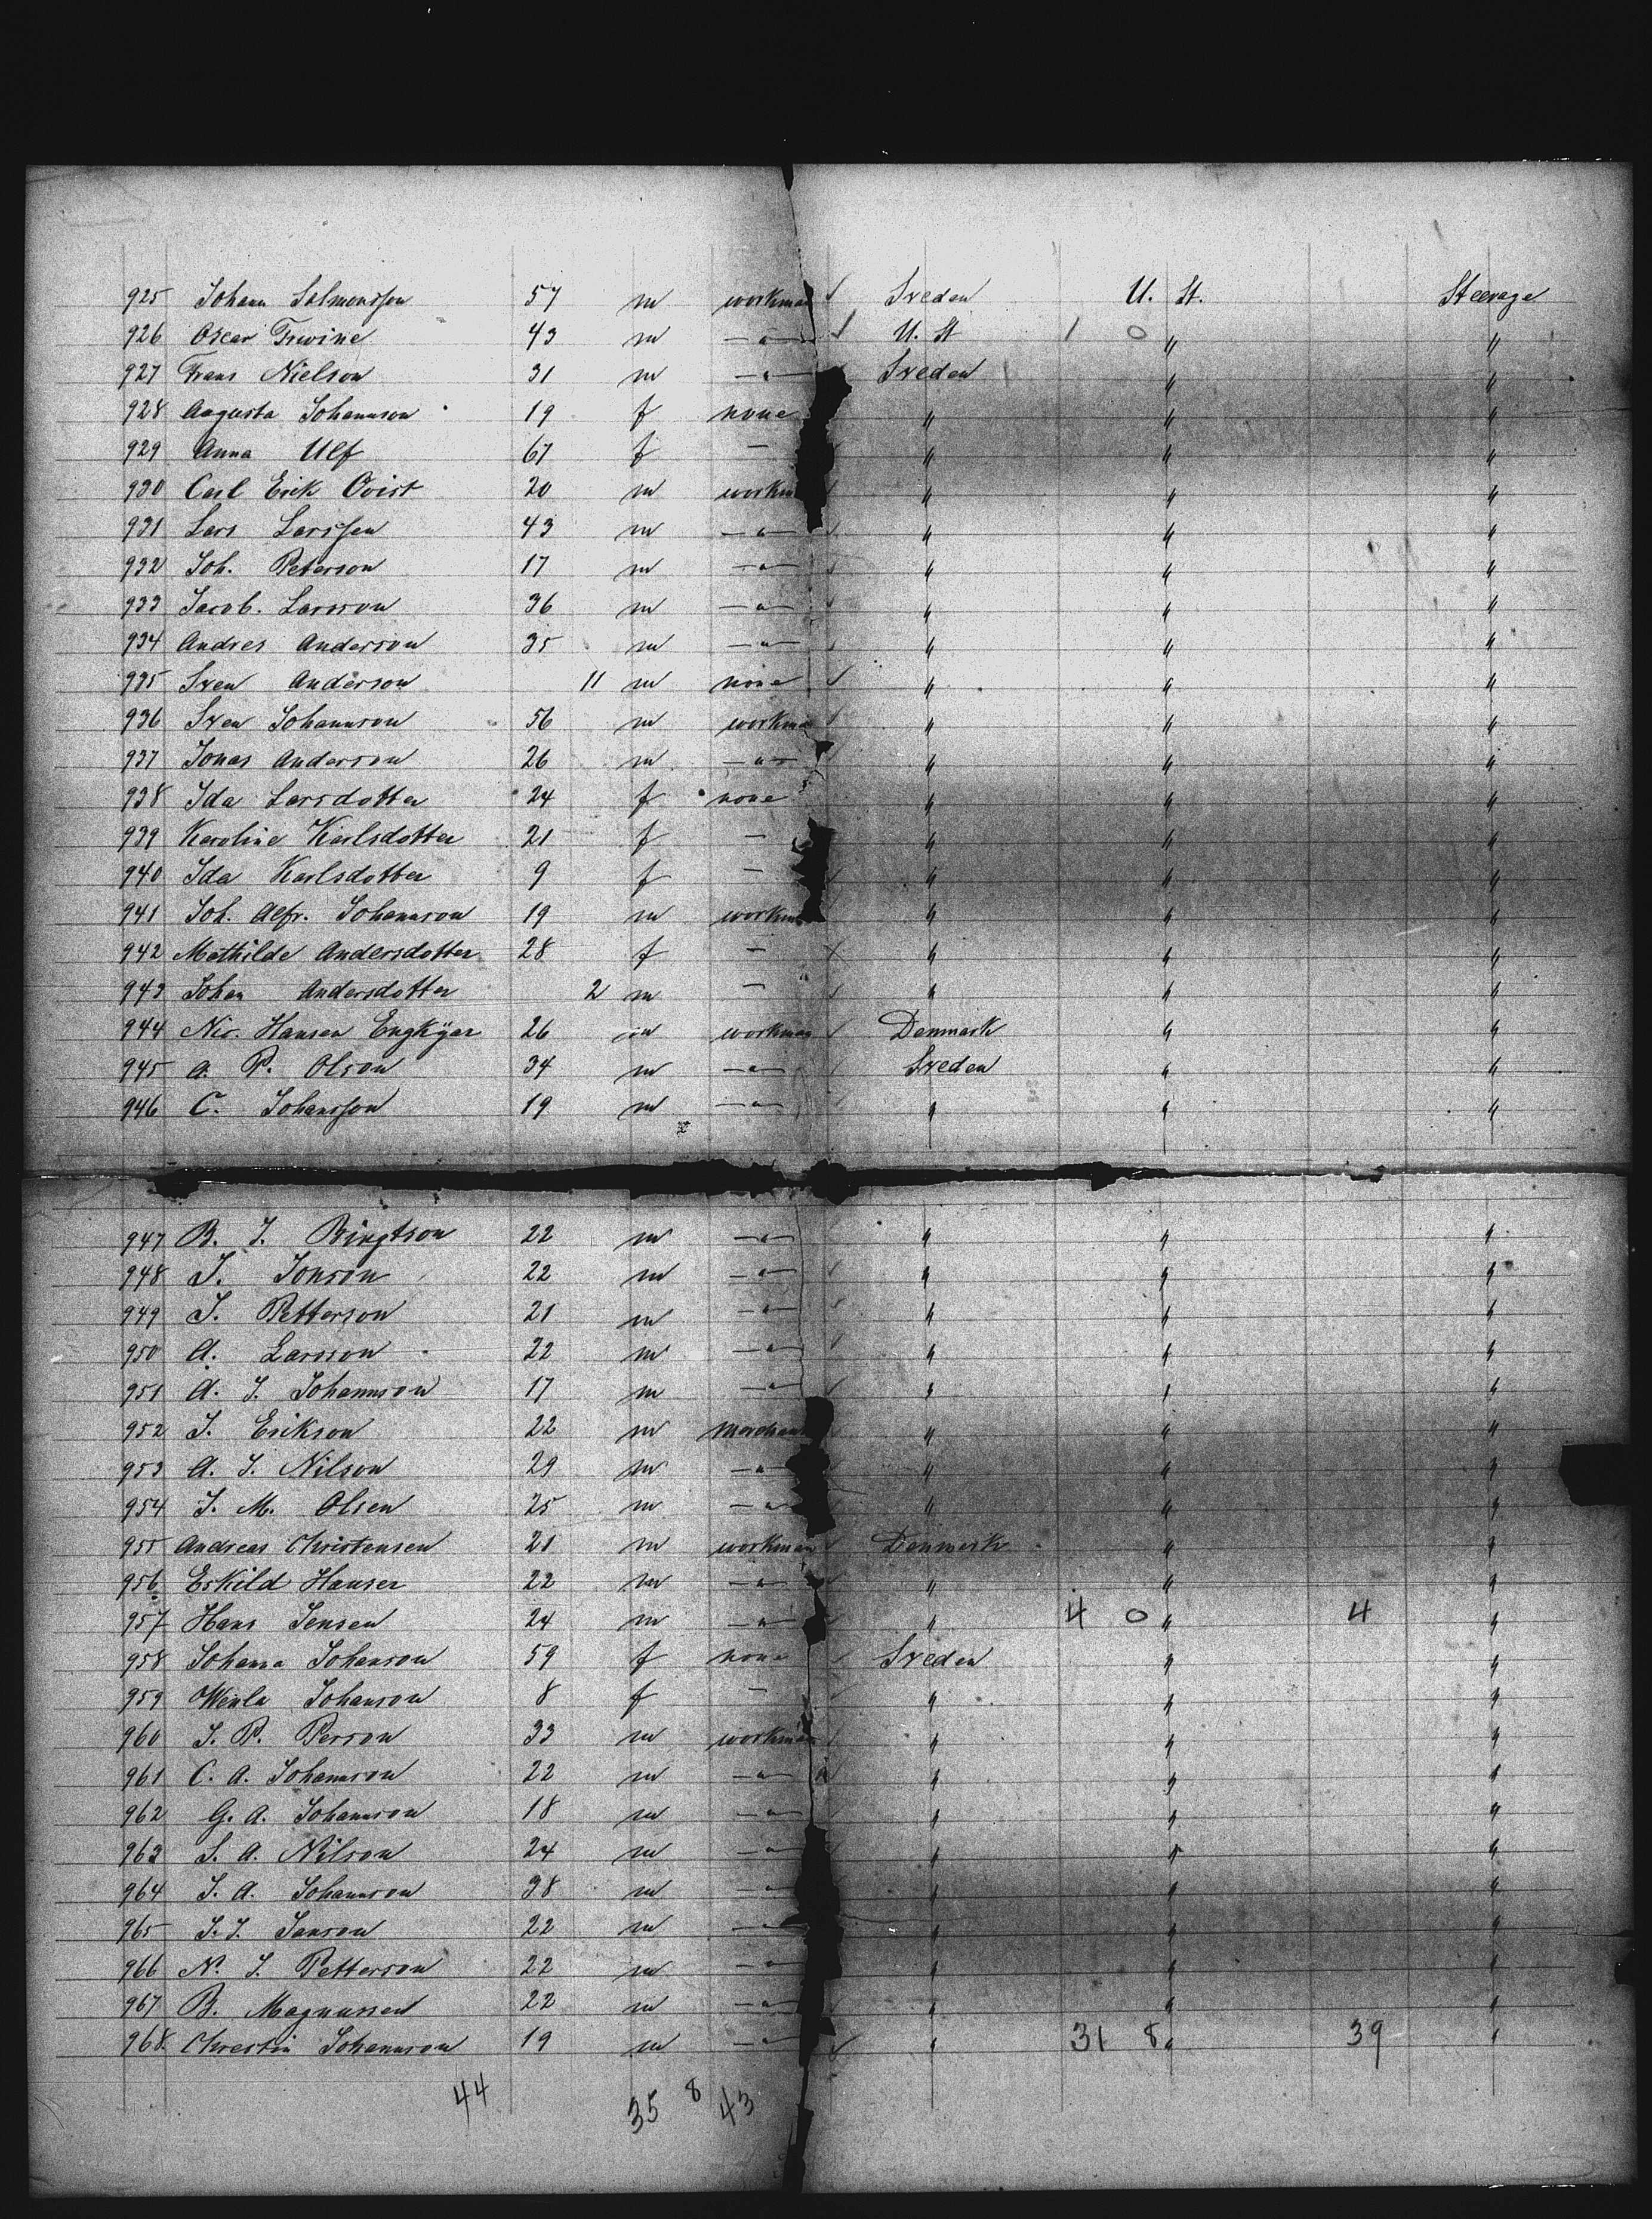 925 Johann Salmonsson 57 m workman Sveden U. St. Steerage
926 Oscar 43 m —"— U. St 1 0 " "
927 Frans Nielson 31 m —"— Sveden " "
928 Augusta Johannson 19 f none " " "
929 Anna Ulf 67 f — " " "
930 Carl Erik Qvist 20 m workm " " "
931 Lars Larssen 43 m —"— " " "
932 Joh. Peterson 17 m —"— " " "
933 Jacob. Larsson 36 m —"— " " "
934 Andres Anderson 35 m —"— " " "
935 Sven Anderson 11 m none " " "
936 Sven Johannson 56 m workman " " "
937 Jonas Anderson 26 m —"— " " "
938 Ida Larsdotter 24 f none " " "
939 Karoline Karlsdotter 21 f — " " "
940 Ida Karlsdotter 9 f — " " "
941 Joh. Alfr. Johannson 19 m workm " " "
942 Mathilde Andersdotter 28 f — " " "
943 Johan Andersdotter 2 m — " " "
944 Nic. Hansen Engkÿar 26 m workman Denmark " "
945 A. P. Olson 34 m —"— Sveden " "
946 C. Johansson 19 m —"— " " "
947 B. J. Bingtson 22 m —"— " " "
948 J. Jonson 22 m —"— " " "
949 J. Petterson 21 m —"— " " "
950 A. Larsson 22 m —"— " " "
951 A. J. Johannson 17 m —"— " " "
952 J. Erikson 22 m Merchant " " "
953 A. J. Nilson 29 m —"— " " "
954 J. M. Olsen 25 m —"— " " "
955 Andreas Christensen 21 m workman Denmark " "
956 Eskild Hansen 22 m —"— " " "
957 Hans Jensen 24 m —"— " 4 0 " 4 "
958 Johanna Johanson 59 f none Sveden " "
959 Johanson 8 f — " " "
960 J. P. Person 33 m workman " " "
961 C. A. Johannson 22 m —"— " " "
962 G. A. Johannson 18 m —"— " " "
963 S. A. Nilson 24 m —"— " " "
964 J. A. Johannson 38 m " " " "
965 J. J. Janson 22 m —"— " " "
966 N. J. Petterson 22 m —"— " " "
967 B. Magnussen 22 m —"— " " "
968 Chrestin Johannson 19 m —"— " 31 8 " 39 "
44 35 8 43